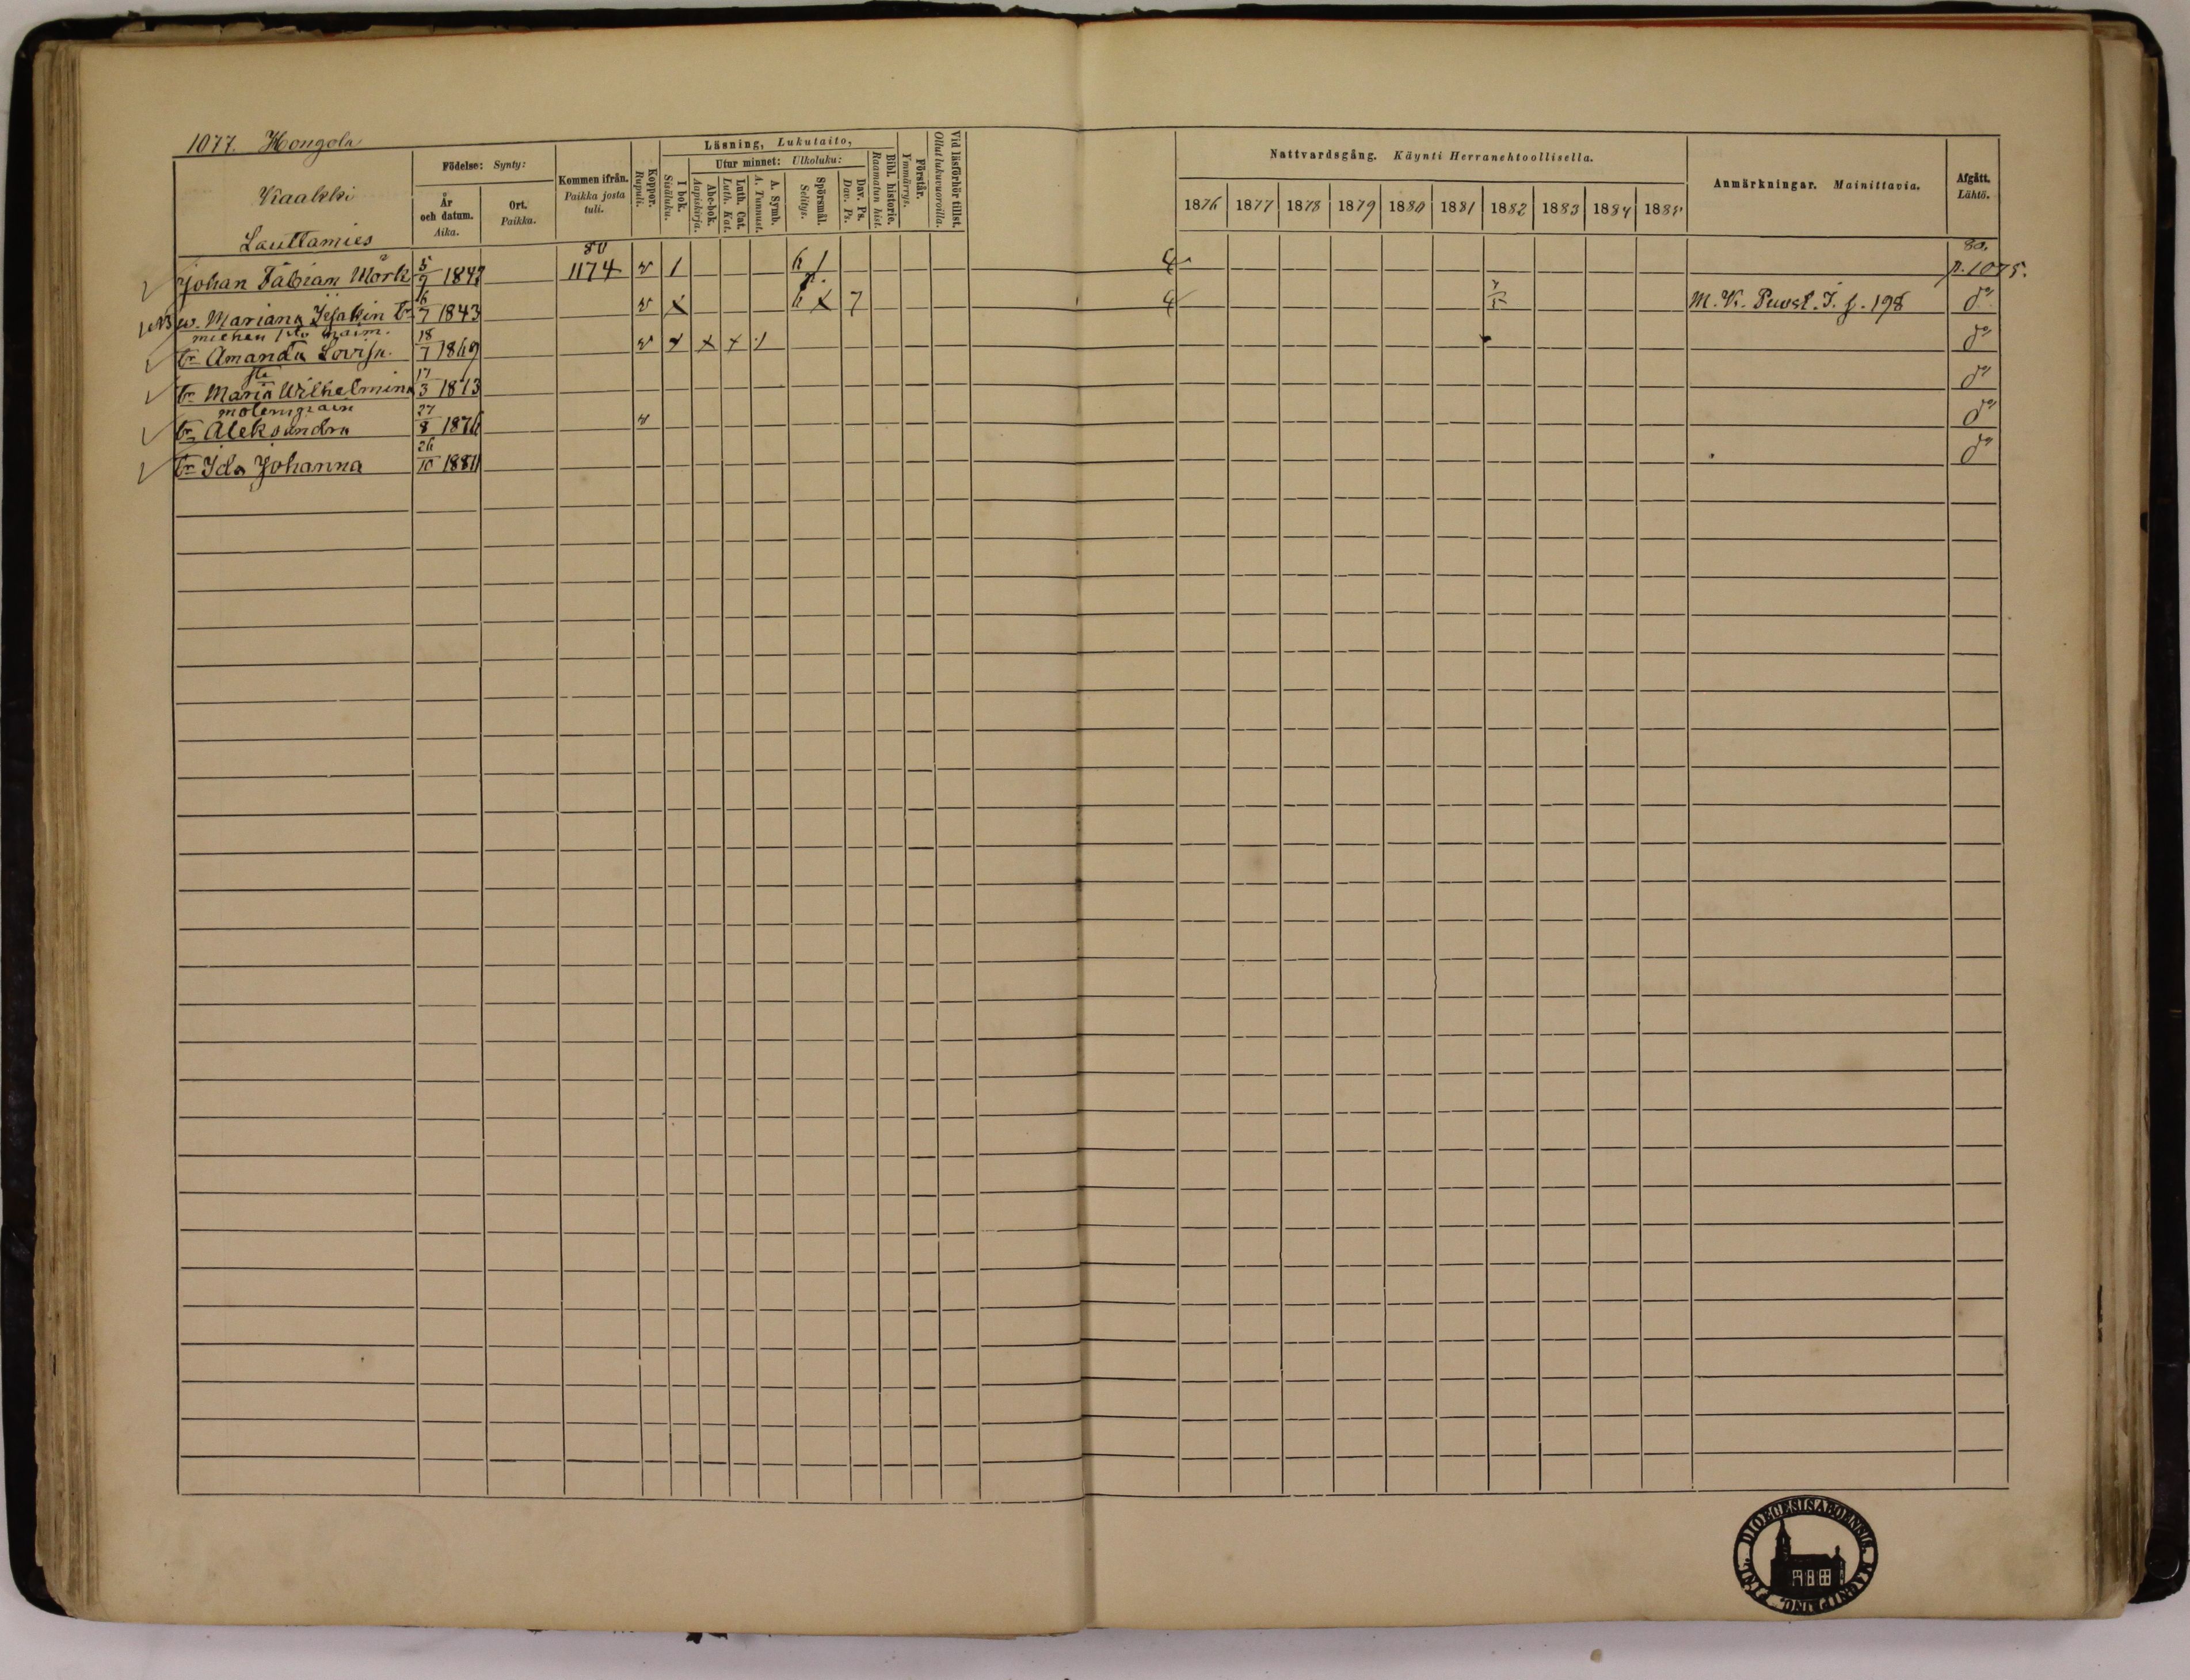 1077. Hongola
Kaakki
Lauttamies
Födelse: Synty:
År och datum. Aika.
Ort. Paikka.
Kommen ifrån. Paikka josta tuli.
Koppor. Rupuli.
Läsning, Lukutaito,
I bok. Sisäluku.
Utur minnet: Ulkoluku:
Abc-bok. Aapiskirja.
Luth. Cat. Luth. Kat.
A. Symb. A. Tunnust.
Spörsmål. Selitys.
Dav. Ps. Dav. Ps.
Bibl. historie. Raamatun hist.
Förstår. Ymmärrys.
Vid läsförhör tillst. Ollut lukuvuoroilla.
Nattvardsgång. Käynti Herranehtoollisella.
1876 1877 1878 1879 1880 1881 1882 1883 1884 1885
Anmärkningar. Mainittavia.
Afgått. Lähtö.
80 80.
Johan Fabian Mörk 5/9 1847 1174 v 1 6 1 4 p. 1075.
w. Mariana Jesakin tr 16/7 1843 v x 6 x 7 4 7/5 M. K. Puust. I. f. 198 do
miehen 1sta naim.
tr Amanda Lovisa. 18/7 1869 v x x x 1 do
tr Maria Wilhelmina 17/3 1873 do
molemgiain
tr Aleksandra 27/8 1876 v do
tr Ida Johanna 26/10 1881 do
DIOECESIS ABOENSIS